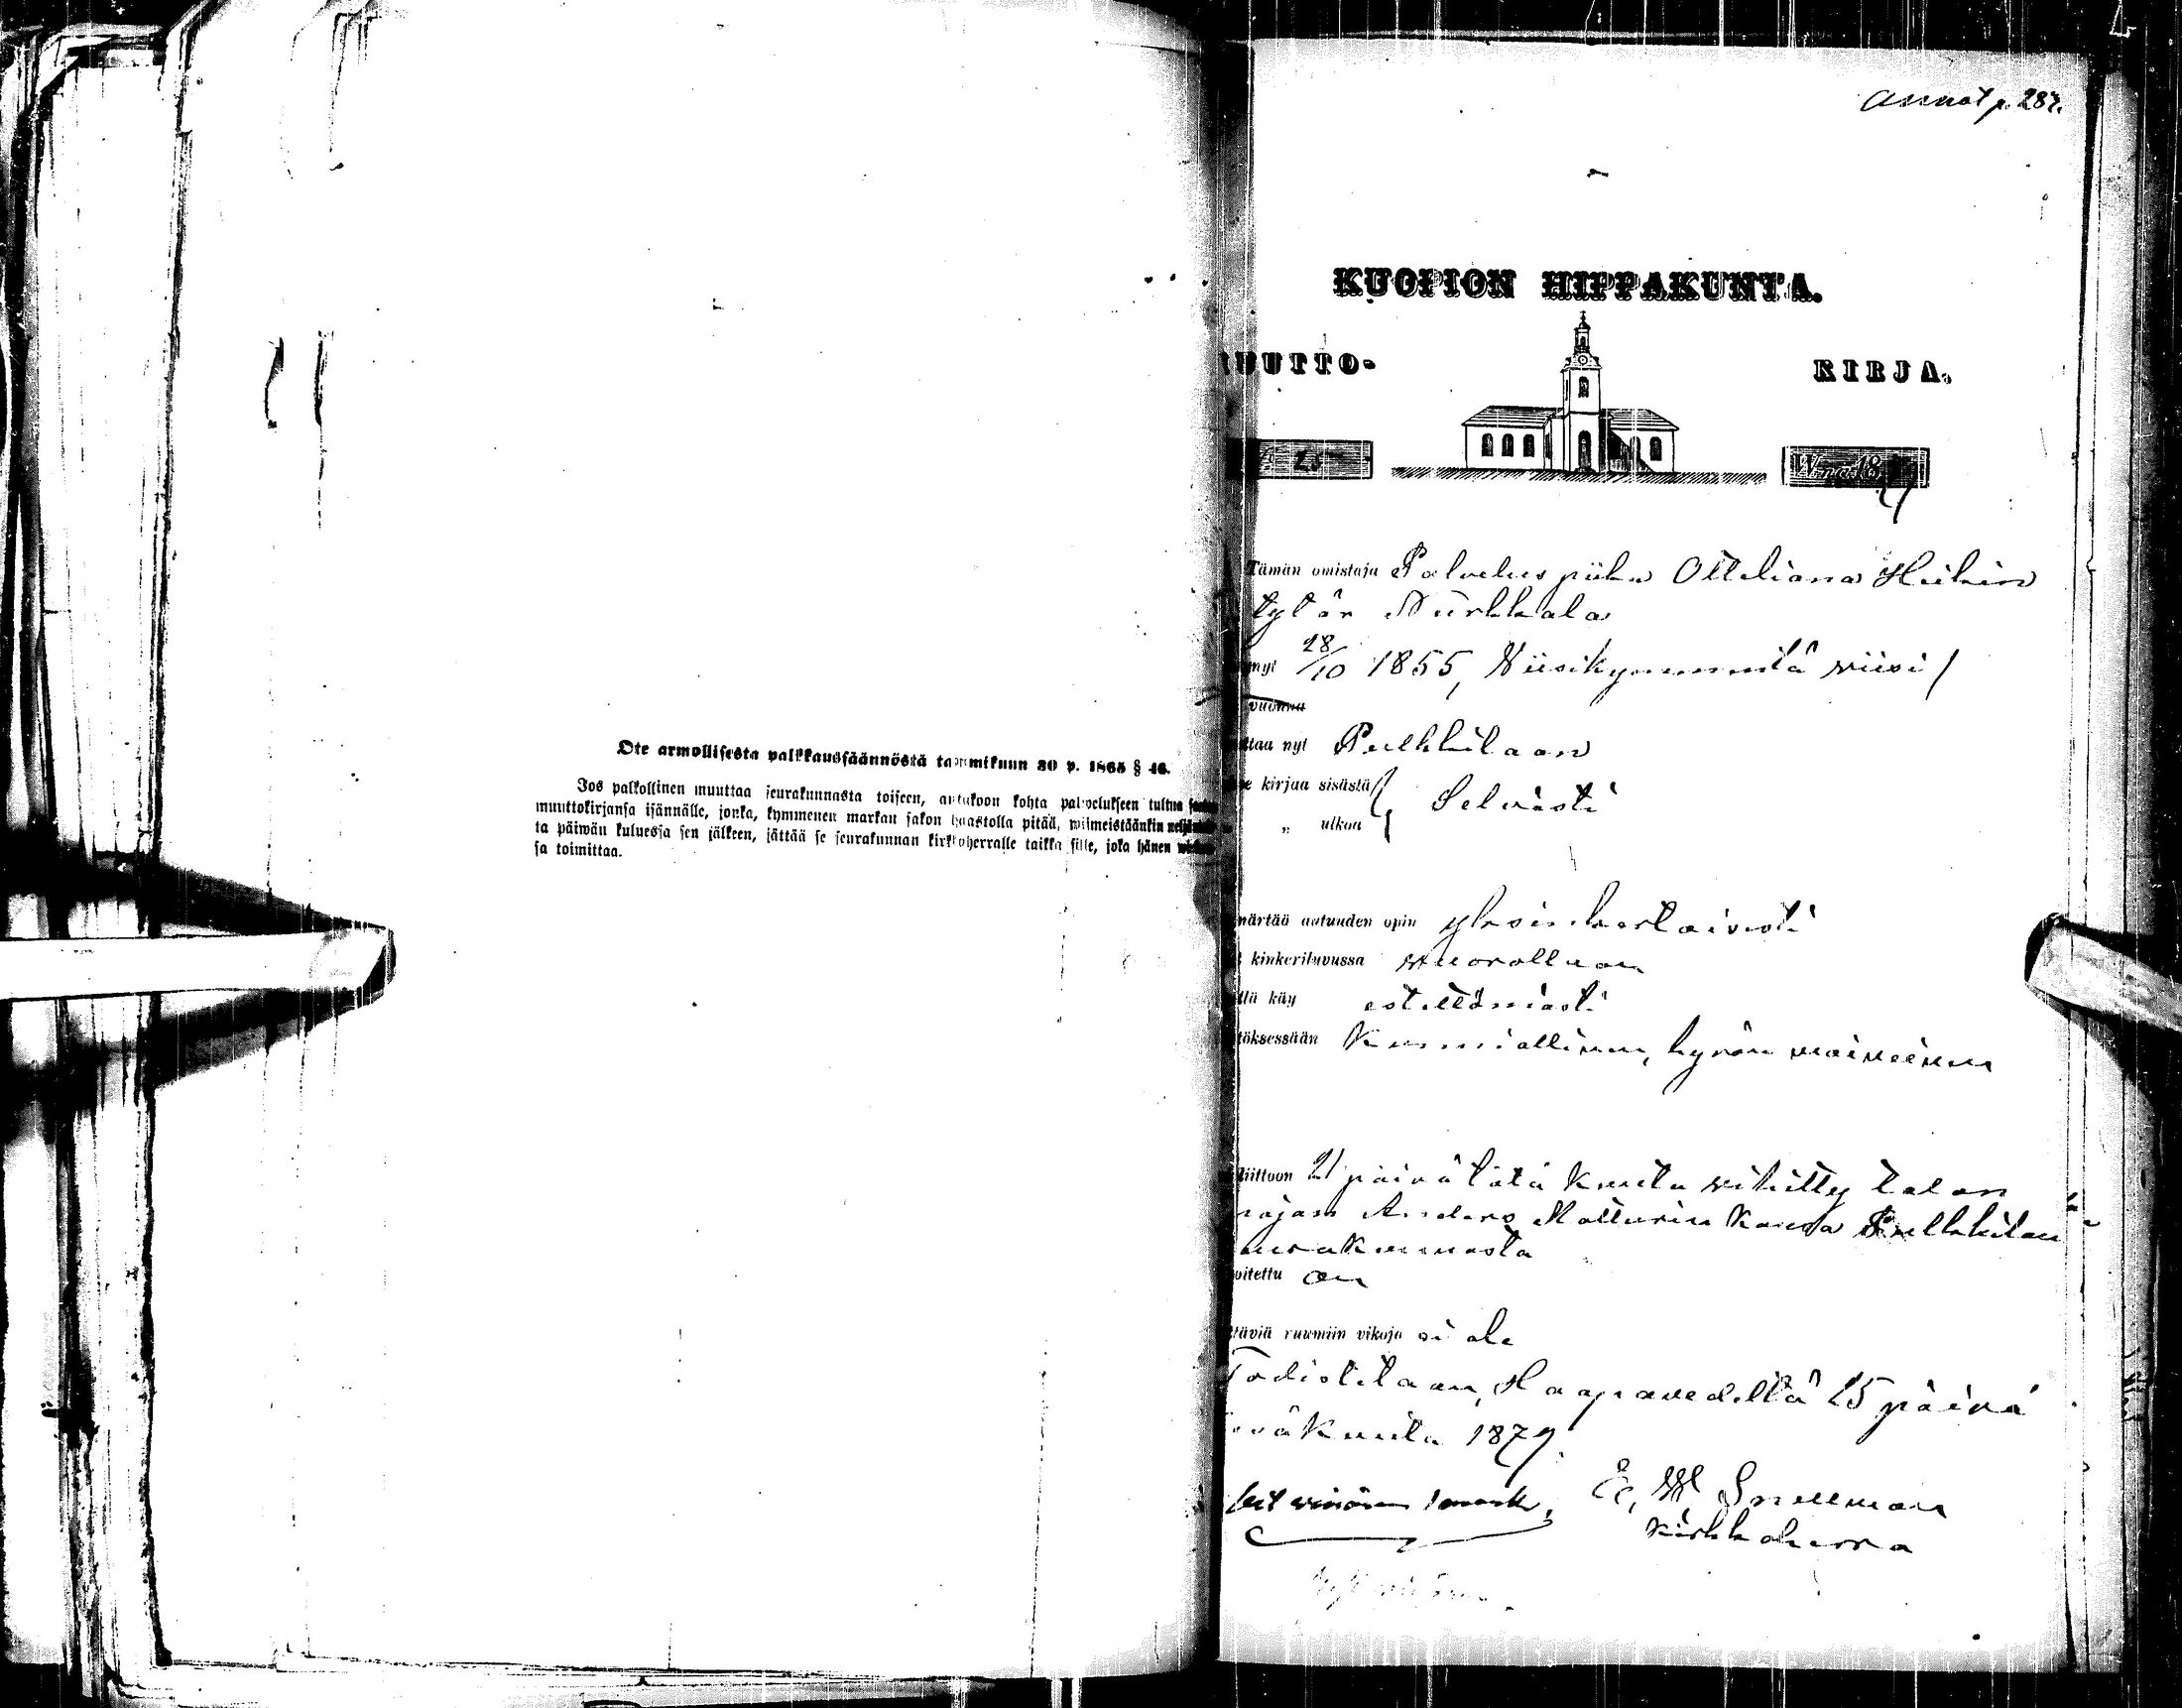 Ote armollisesta palkkaussäännöstä tammikuun 30 p. 1865 § 46.
Jos palkollinen muuttaa seurakunnasta toiseen, antakoon kohta palvelukseen tultua
muuttokirjansa isännälle, jonka, kymmenen markan sakon haastolla pitää, wiimeistäänkin
ta päiwän kuluessa sen jälkeen, jättää se seurakunnan kirkkoherralle taikka sille, joka hänen
sa toimittaa.
p. 287.
KUOPION HIPPAKUNTA.
MUUTTO-
KIRJA.
25
W:na 18
Tämän omistaja Palvelus piika Ottiliana Heikin
tytär Nürkkala
nyt 28/10 1855, Viisikymmentä viisi /
vuonna
ttaa nyt Pulkkilaan
kirjaa sisästä
Selvästi
„ ulkoa
märtää autuuden opin yksinkertaisesti
kinkeriluvussa vuorollaan
llä käy esteettömästi
töksessään Kunniallinen, hyvän maineinen
liittoon 21 päivä tätä kuuta vihitty talon
pojan Anders Matturin kanssa Pulkkilan
seurakunnasta
voitettu on
täviä ruumiin vikoja ei ole
Todistetaan, Haapavedellä 25 päivä
kuuta 1879.
1 mark.
E. W. Snellman
Kirkkoherra